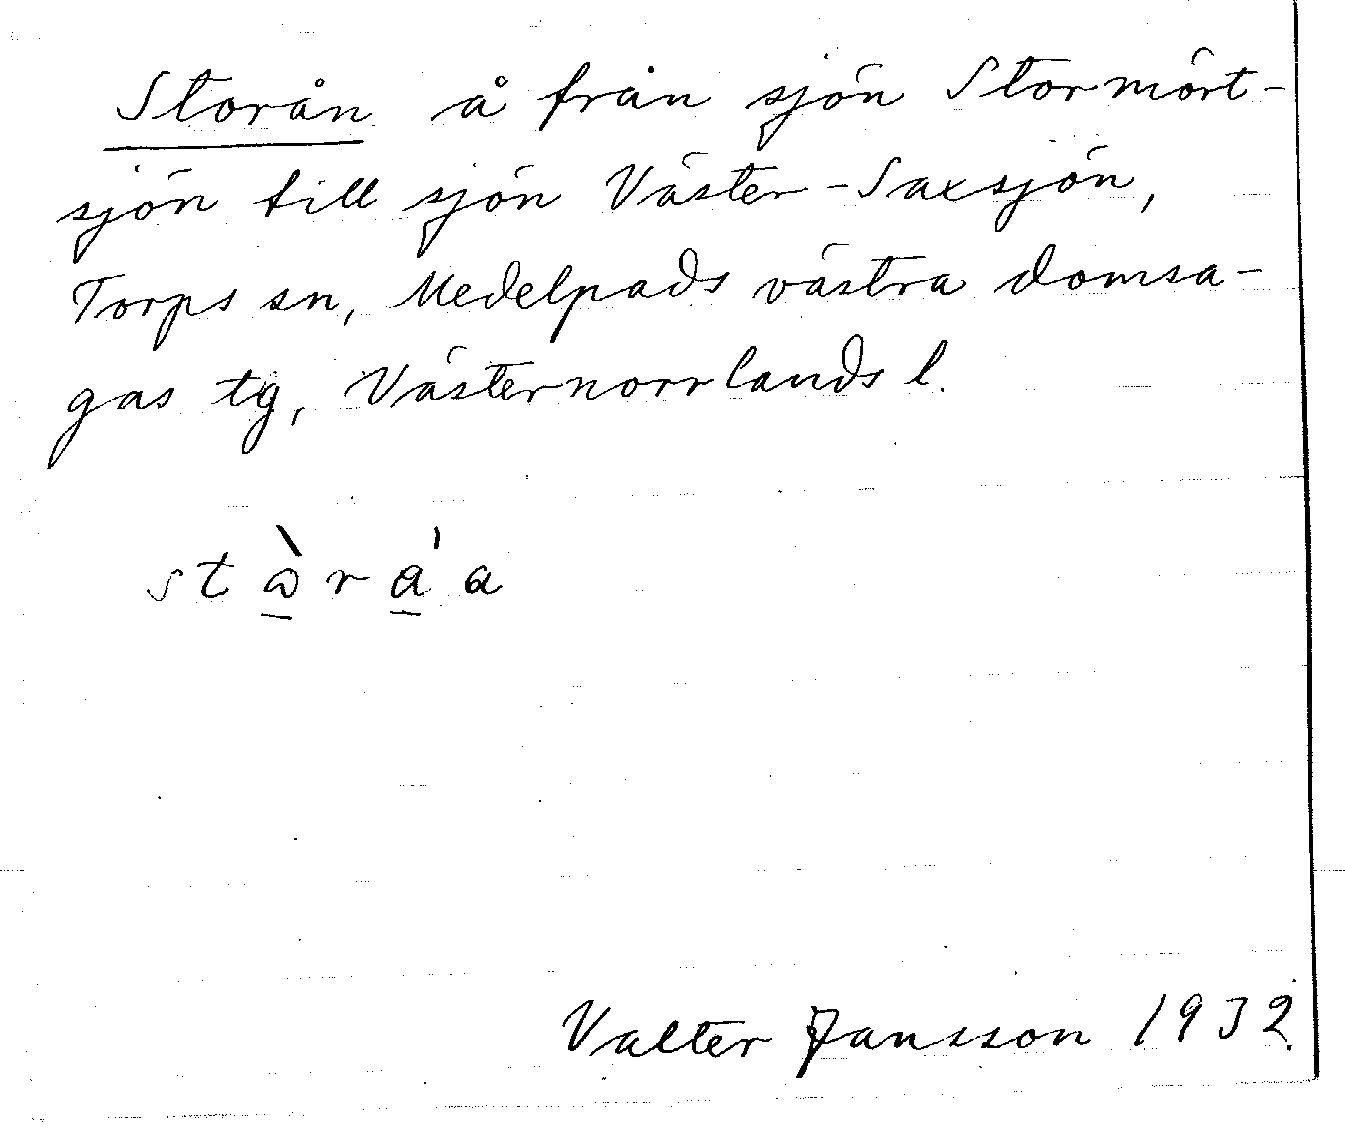 Storån å från sjön Stormört-
sjön till sjön Väster-Saxsjön,
Torps sn, Medelpads västra domsa-
gas tg, Västernorrlands l.
Valter Jansson 1932.